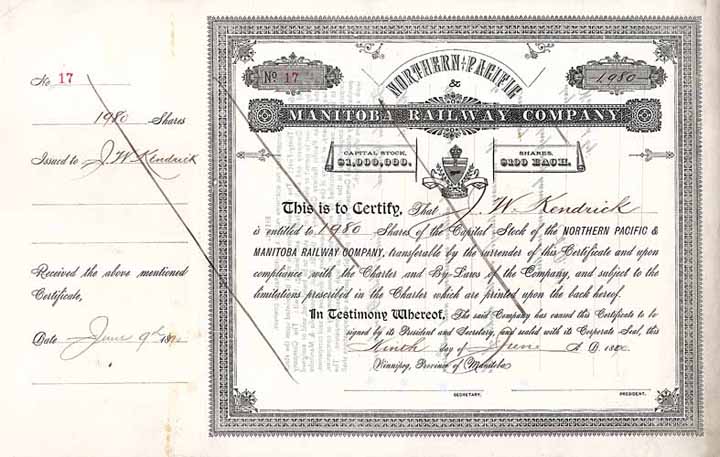 No 17
1980 Shares
Issued to J. W. Kendrick
Received the above mentioned
Certificate,
Date June 9th 18
No 17
1980
NORTHERN PACIFIC
&
MANITOBA RAILWAY COMPANY
CAPITAL STOCK,
$1,000,000.
SHARES,
$100 EACH.
This is to Certify, That J. W. Kendrick
is entitled to 1980 Shares of the Capital Stock of the NORTHERN PACIFIC &
MANITOBA RAILWAY COMPANY, transferable by the surrender of this Certificate and upon
compliance with the Charter and By-Laws of the Company, and subject to the
limitations prescribed in the Charter which are printed upon the back hereof.
In Testimony Whereof, The said Company has caused this Certificate to be
signed by its President and Secretary, and sealed with its Corporate Seal, this
Ninth day of June A. D. 18
Winnipeg, Province of Manitoba
SECRETARY.
PRESIDENT.